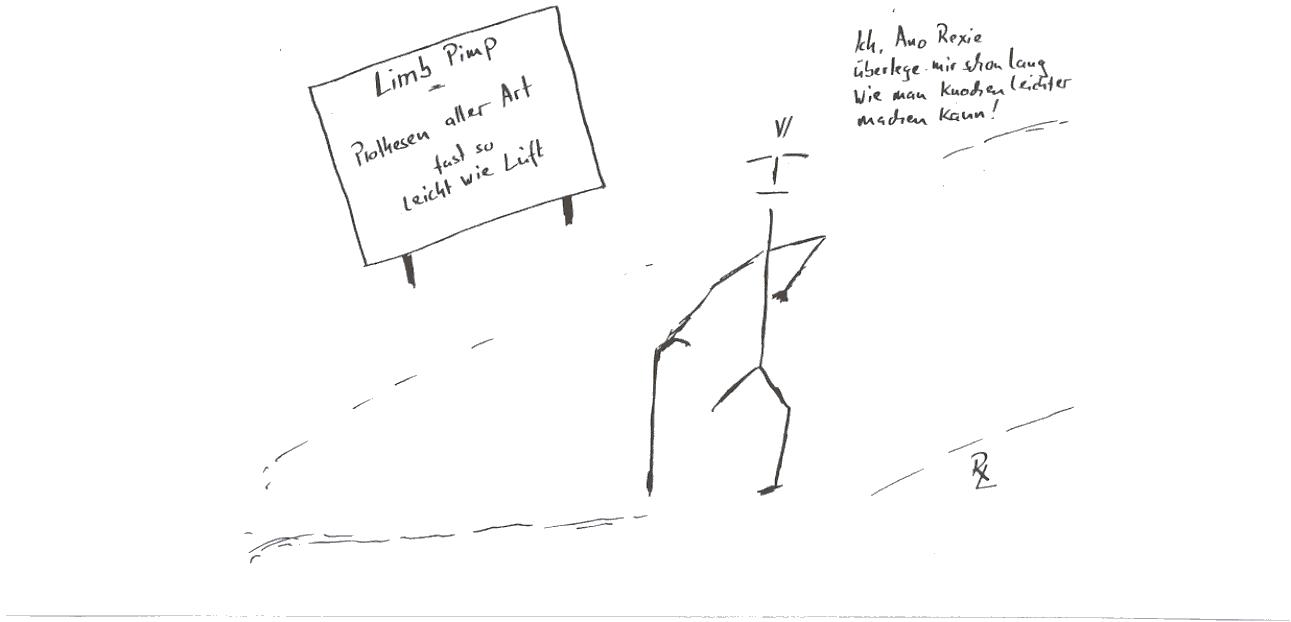 Limb Pimp
Prothesen aller Art
fast so
leicht wie Luft
Ich, Ano Rexie
überlege mir schon lang
Wie man Knochen leichter
machen kann!